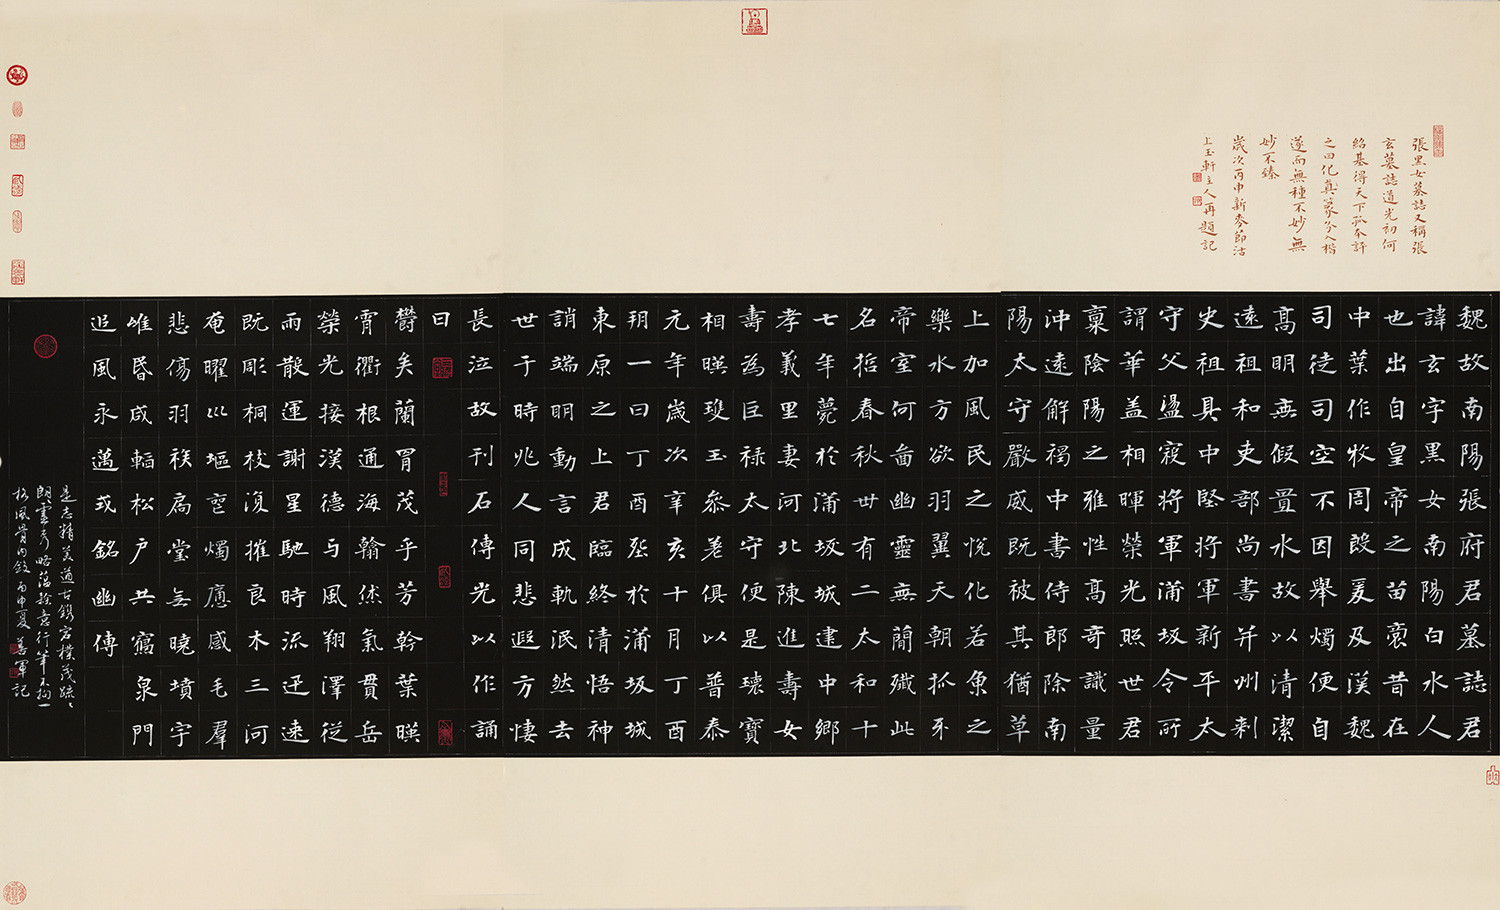 張黑女墓誌又稱張
玄墓誌道光初何
紹基得天下孤本評
之曰化真篆分入楷
遂而無種不妙無
妙不臻
歲次丙申新麥節沽
上玉軒主人再題記
魏故南陽張府君墓誌君
諱玄字黑女南陽白水人
也出自皇帝之苗裔昔在
中葉作牧周殷爰及漢魏
司徒司空不因舉燭便自
高明無假置水故以清潔
遠祖和吏部尚書并州刺
史祖具中堅將軍新平太
守父盪寇將軍蒲坂令所
謂華蓋相暉榮光照世君
稟陰陽之雅性高奇識量
沖遠解褐中書侍郎除南
陽太守嚴威既被其猶草
上加風民之悅化若魚之
樂水方欲羽翼天朝抓牙
帝室何啚幽靈無簡殲此
名哲春秋卅有二太和十
七年薨於蒲坂城建中鄉
孝義里妻河北陳進壽女
壽為巨祿太守便是瓌寶
相暎瓊玉參差俱以普泰
元年歲次辛亥十月丁酉
朔一日丁酉葬於蒲坂城
東原之上君臨終清悟神
誚端明動言成軌泯然去
世于時兆人同悲遐方悽
長泣故刊石傳光以作誦
曰
鬱矣蘭胃茂乎芳幹葉暎
霄衢根通海翰然氣貫岳
榮光接漢德与風翔澤從
雨散運謝星馳時流迅速
既彫桐枝復摧良木三河
奄曜巛塸燭感毛羣
悲傷羽族扃堂無曉墳宇
唯昏咸韜松户共寢泉門
追風永邁或銘幽傳
是志精美遒古宕樸茂疎
朗略蕩意行筆不拘一
格風骨內斂丙申夏善軍記